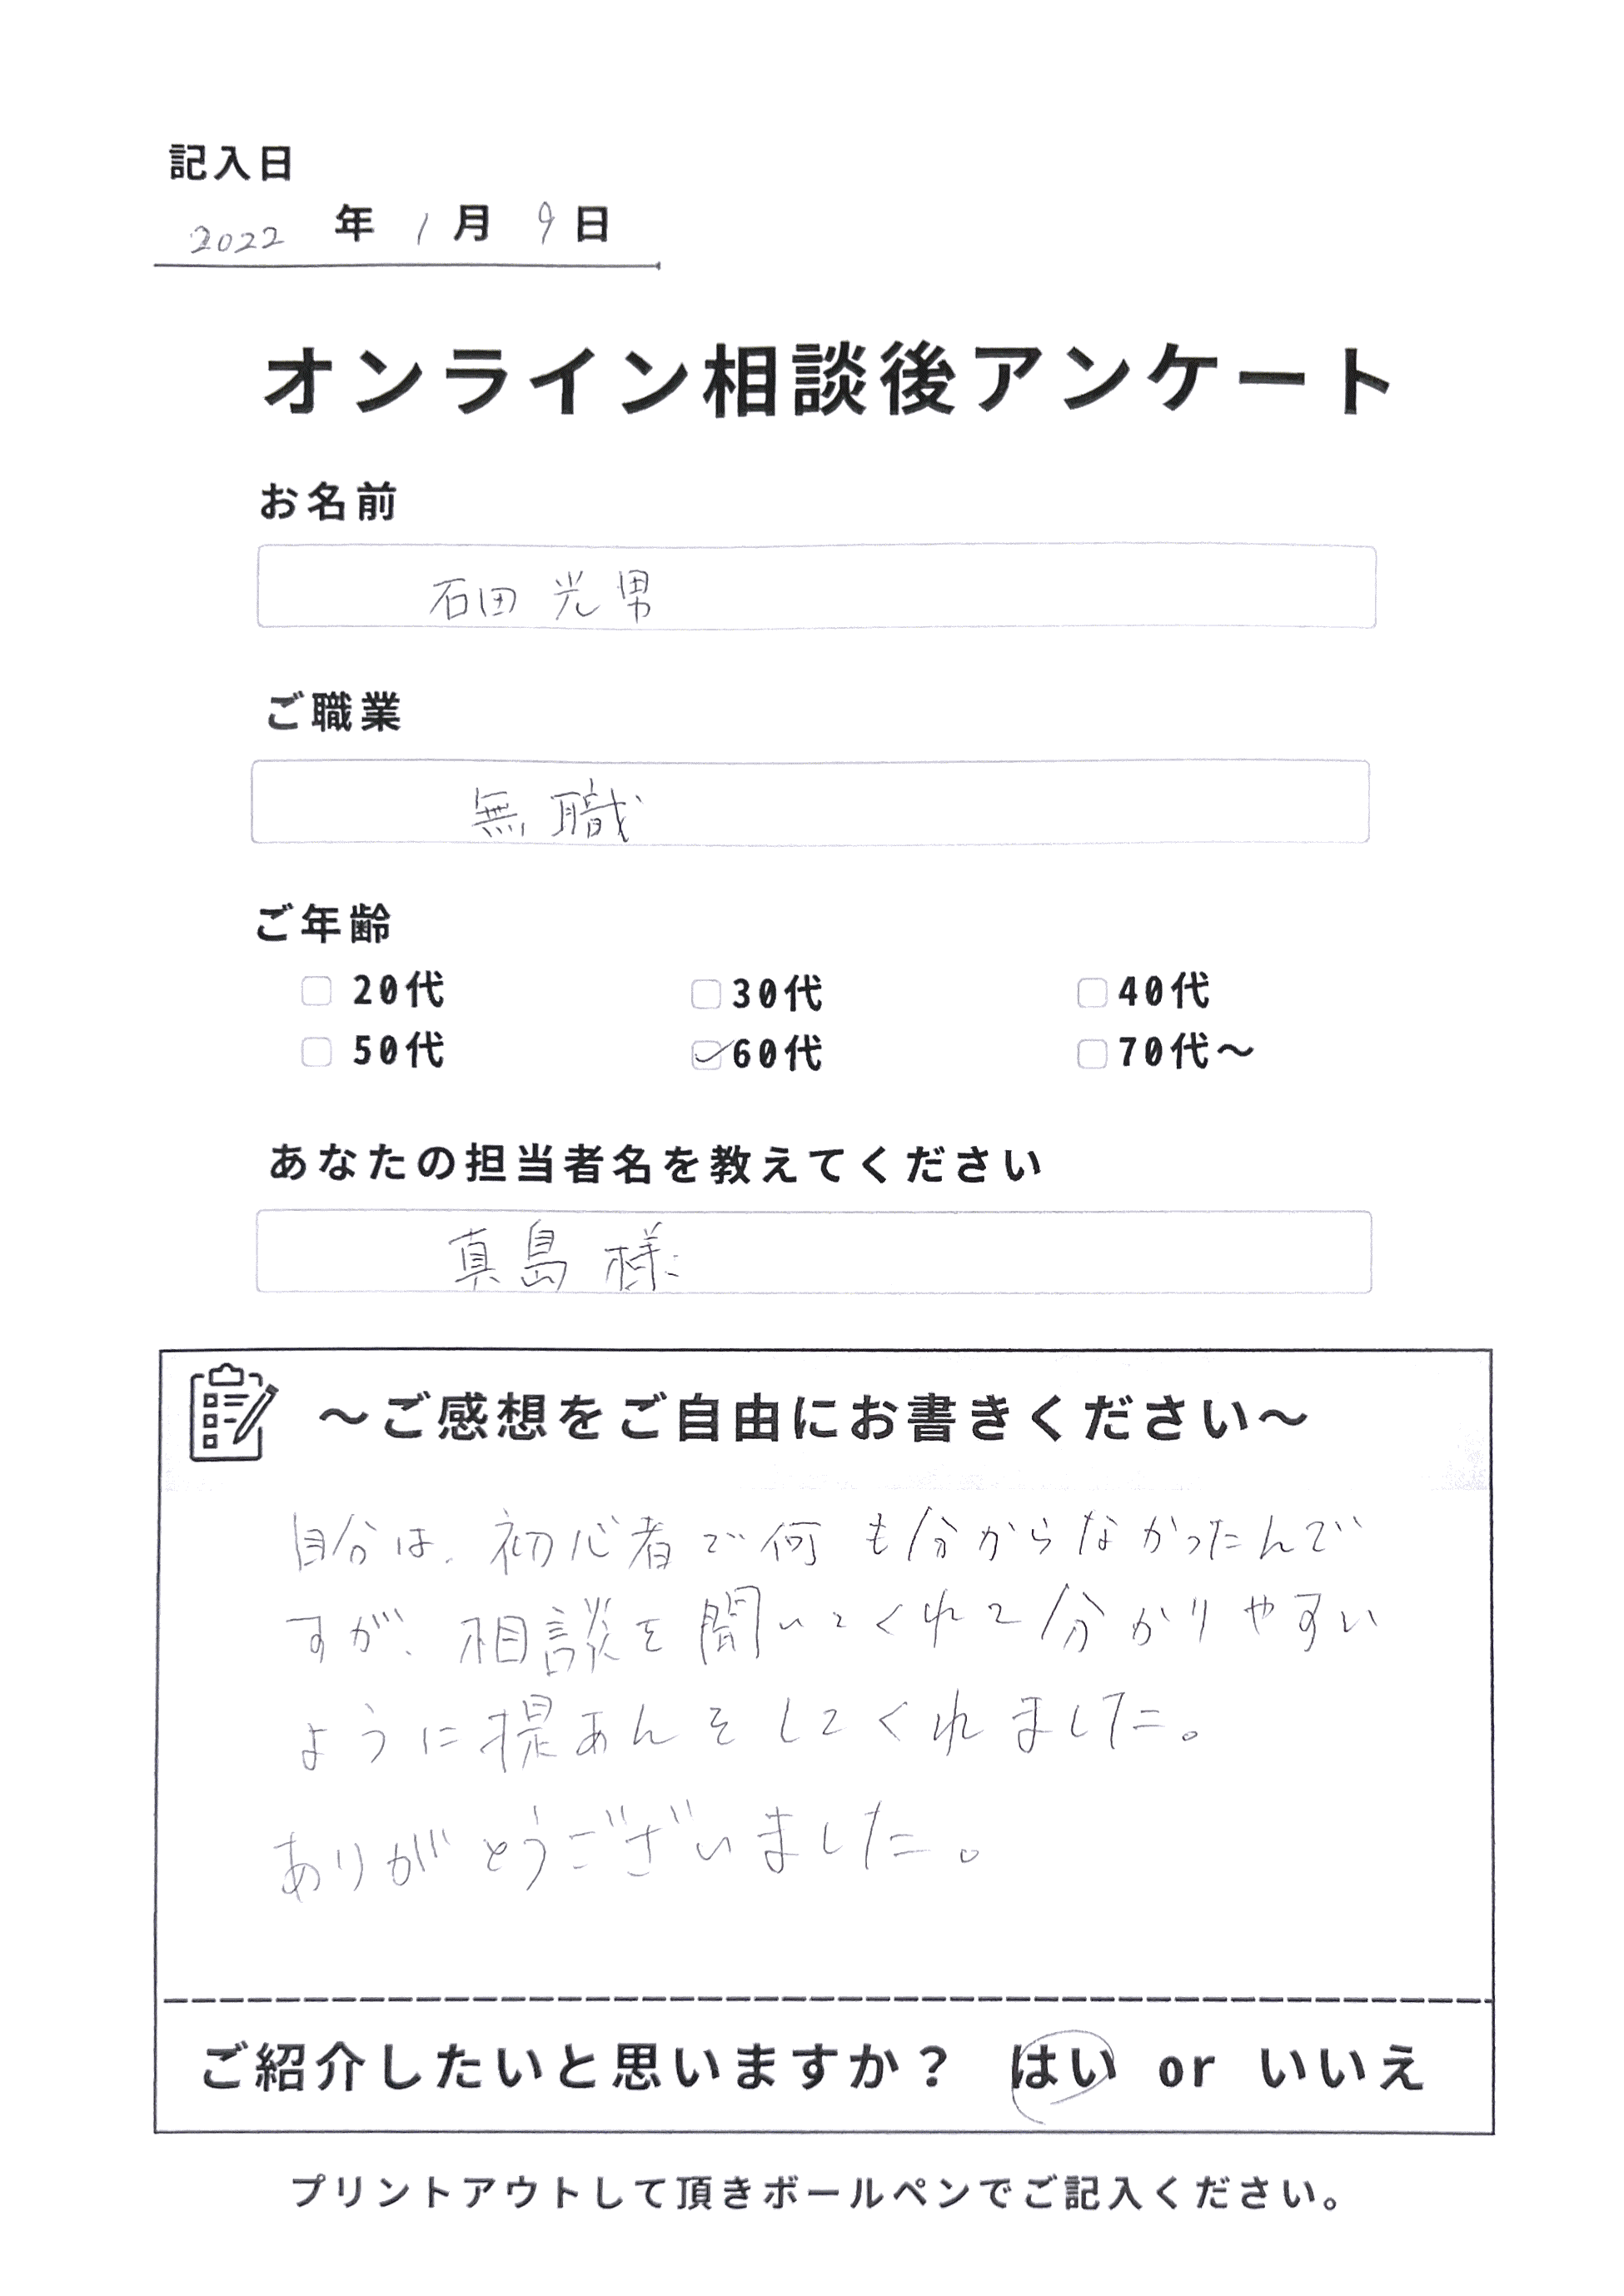 記入日
2022 年 1 月 9 日
オンライン相談後アンケート
お名前
石田 光男
ご職業
無職
ご年齢
20代 30代 40代
50代 60代 70代～
あなたの担当者名を教えてください
真島 様
～ご感想をご自由にお書きください～
自分は、初心者で何も分からなかったんで
すが、相談を聞いてくれて分かりやすい
ように提あんをしてくれました。
ありがとうございました。
ご紹介したいと思いますか？ はい or いいえ
プリントアウトして頂きボールペンでご記入ください。